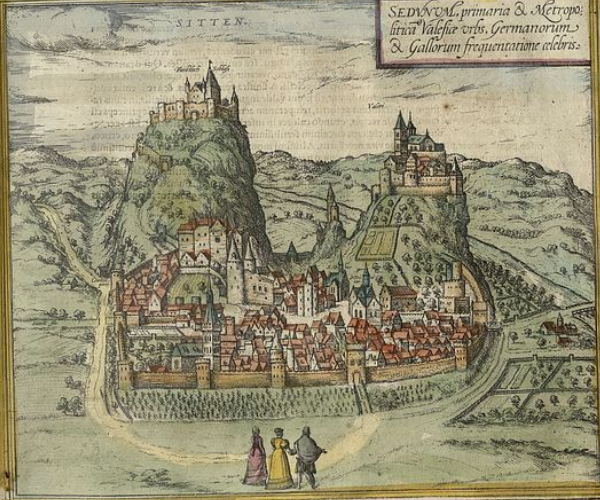 SITTEN.
SEDVNVM, primaria & Metropo-
litica Valesiæ vrbs, Germanorum
& Gallorum frequentatione celebris.
Valeri